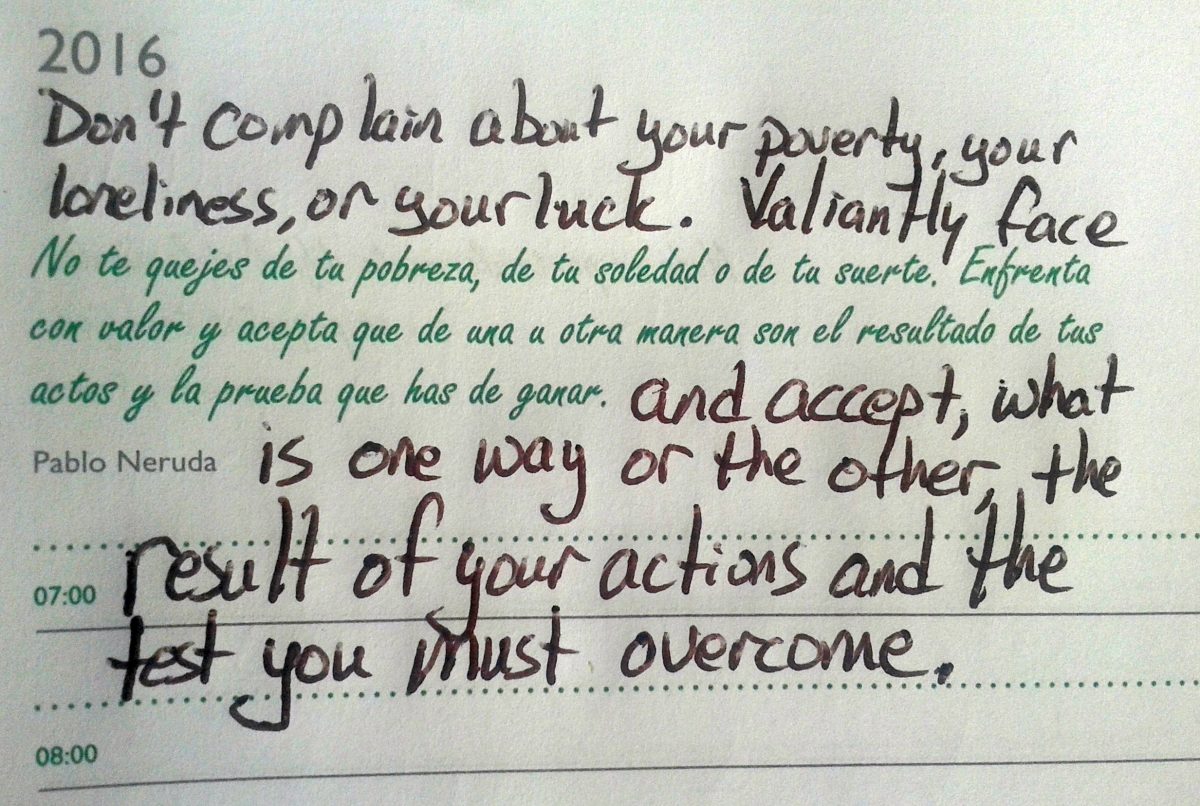 2016
Don't complain about your poverty, your
loneliness, or your luck. Valiantly face
No te quejes de tu pobreza, de tu soledad o de tu suerte. Enfrenta
con valor y acepta que de una u otra manera son el resultado de tus
actos y la prueba que has de ganar.
and accept, what
Pablo Neruda
is one way or the other, the
result of your actions and the
07:00
test you must overcome.
08:00